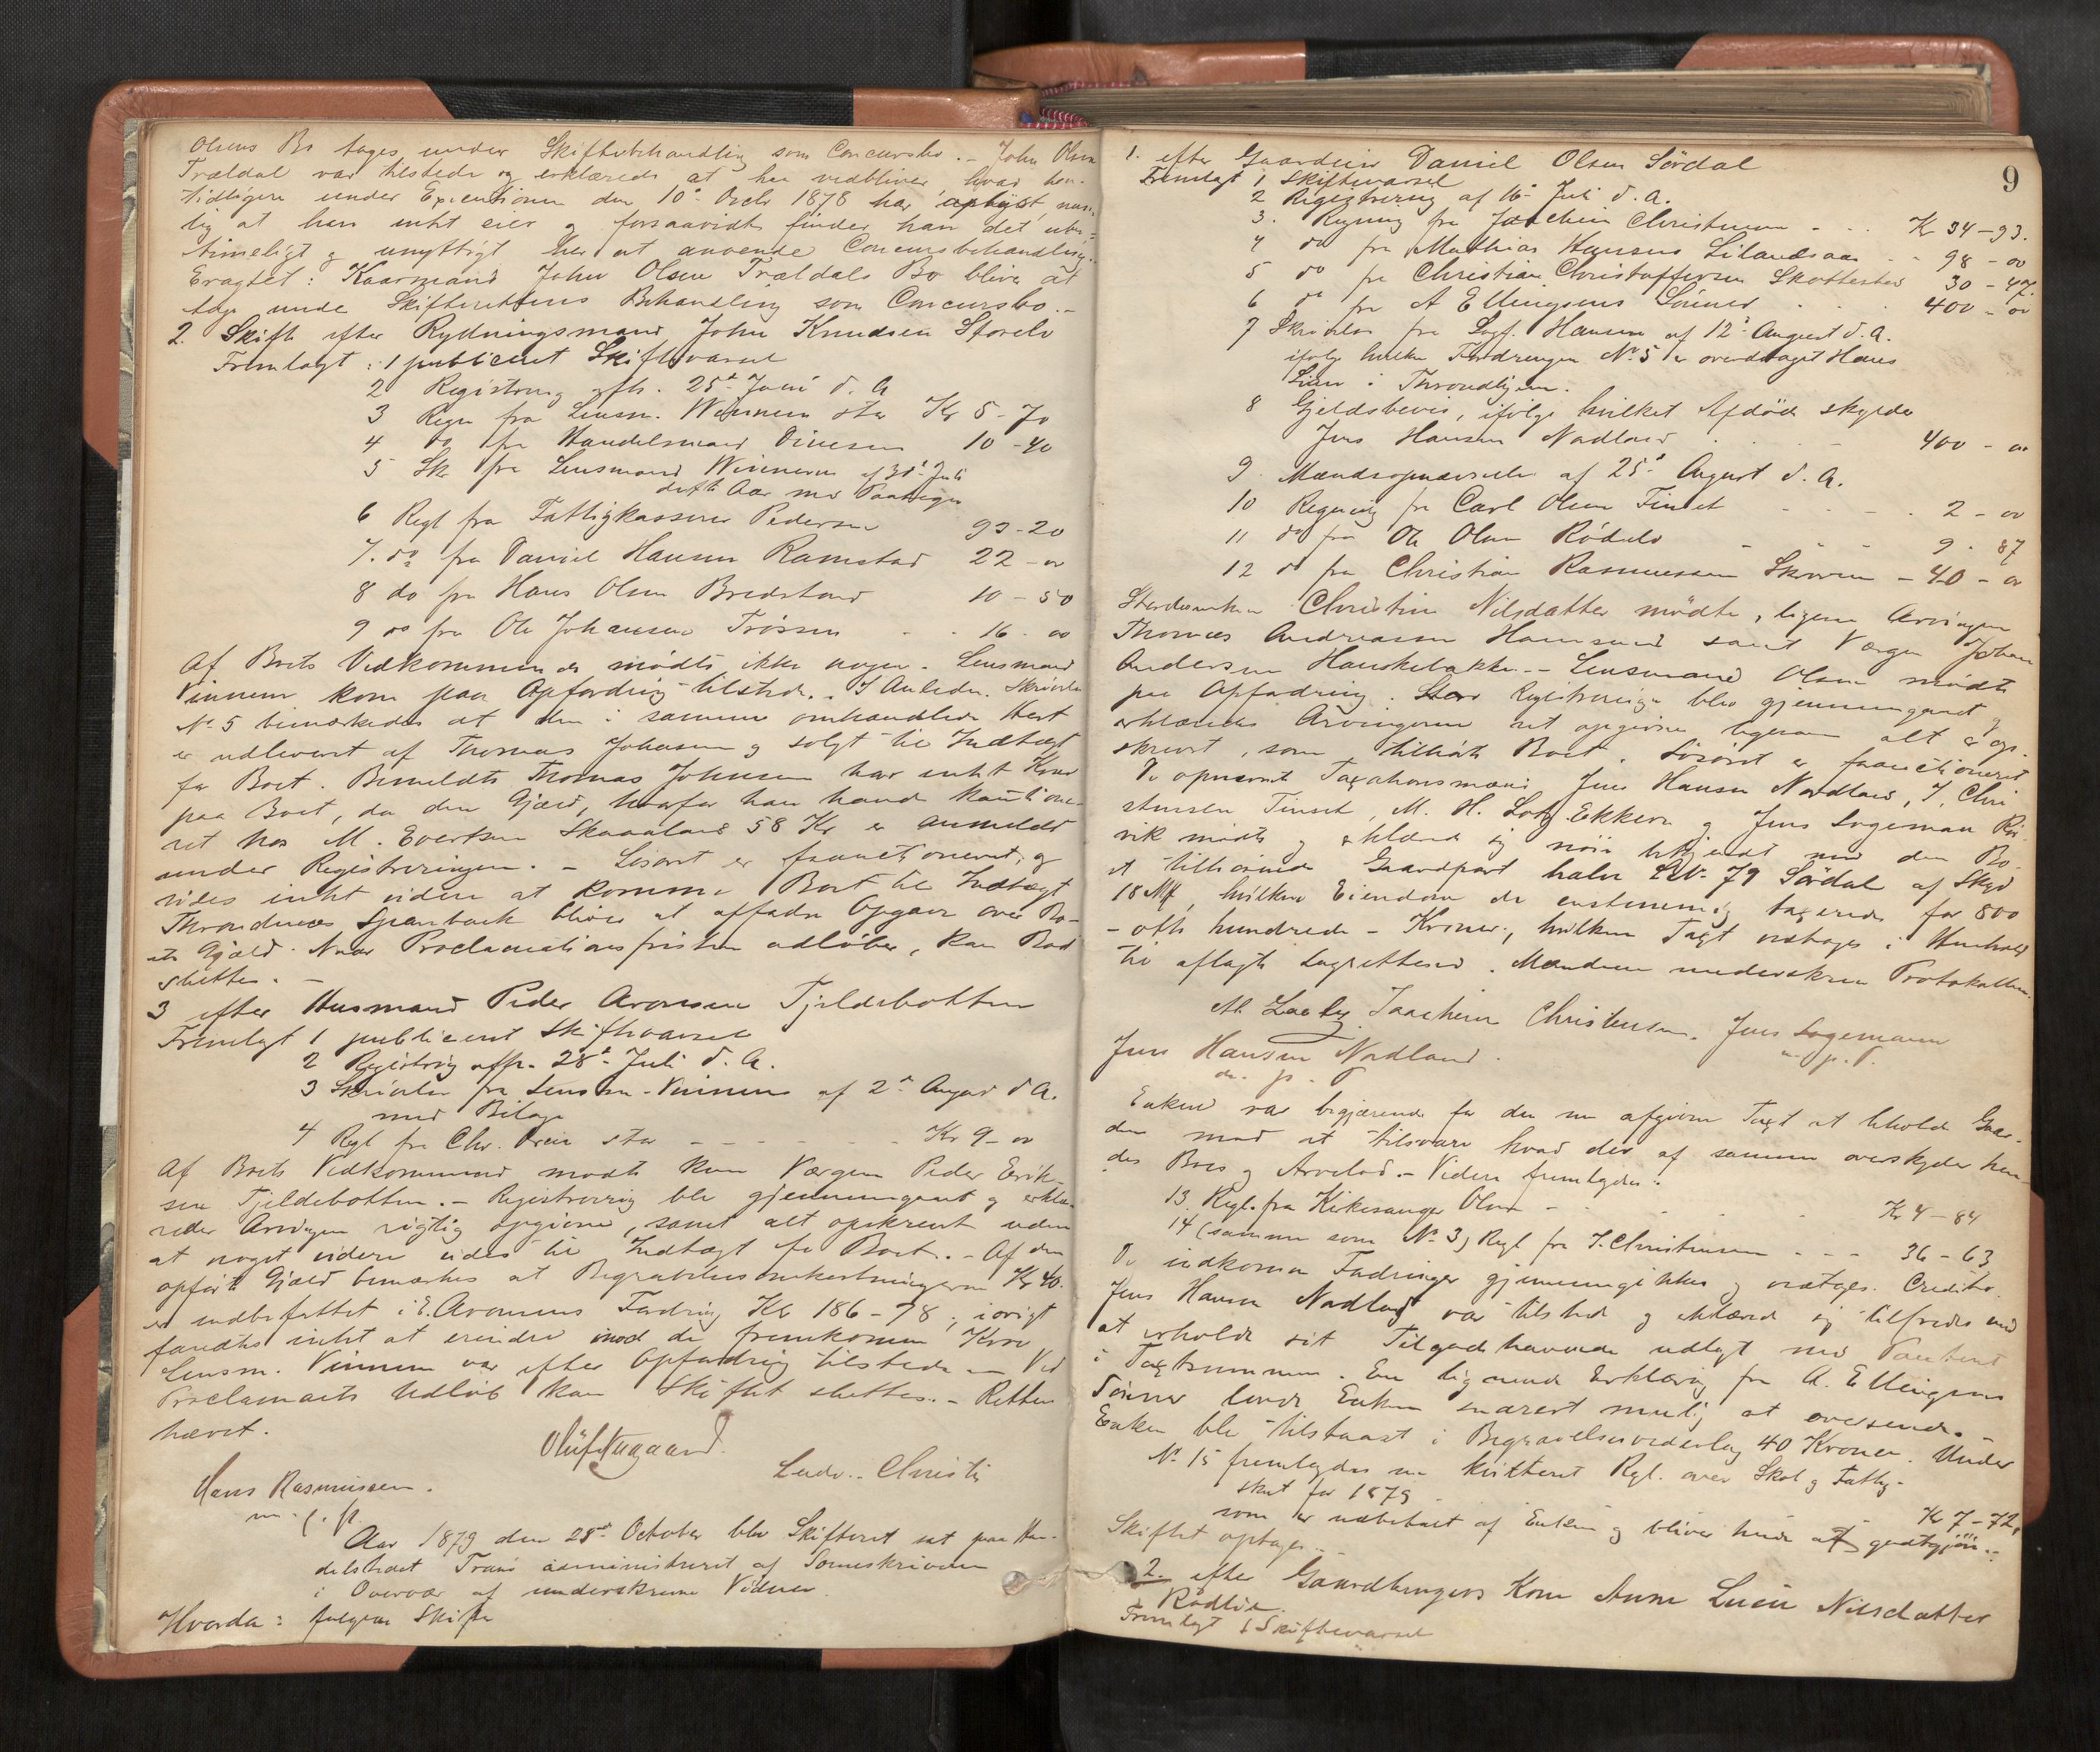 Olsens Bo tages under Skiftebehandling som Concursbo. – John Olsen
Trældal var tilstede og erklærede at han vedbliver, hvad han
tidligere under Executionen den 10de Octbr 1878 har oplyst, nem-
lig at han intet eier og forsaavidt finder han det ube-
timeligt og unyttigt her at anvende Concursbehandling.
Eragtet: Kaarmand John Olsen Trældals Bo bliver at
tage under Skifterettens Behandling som Concursbo. –
2. Skifte efter Rydningsmand John Knudsen Storelv
Fremlagt: 1 publiceret Skiftevarsel
2 Registrering afh. 25de Juni d. A
3 Regn fra Lensm. Winnem stor Kr 5-70
4 do fra Handelsmand Divesen 10-40
5 Skr fra Lensmand Winnem af 30te Juli
dette Aar med Paategn
6 Regl fra Fattigkasserer Pedersen 93-20
7. do fra Daniel Hansen Ramstad 22-00
8 do fra Hans Olsen Bredstrand 10-50
9 do fra Ole Johansen Trøssen - - 16-00
Af Boets Vedkommende mødte ikke nogen. Lensmand
Vinnem kom paa Opfordring tilstede. I Anledn. Skrivelse
No 5 bemærkedes at den i samme omhandlede Hest
er udleveret af Thomas Johnsen og solgt til Indtægt
for Boet. Bemeldte Thomas Johnsen har intet Krav
paa Boet, da den Gjæld, hvorfor han havde kautione-
ret hos M. Evertsen Skaaland 58 Kr er anmeldt
under Registreringen. – Løsøret er fauctioneret, og
vides intet videre at komme Boet til Indtægt
Throndenæs Sparebank bliver at affordre Opgave over Bo-
ets Gjæld. Naar Proclamationsfristen udløber, kan Boet
sluttes. –
3 efter Husmand Peder Aronsen Tjeldebotten
Fremlagt 1 publiceret Skiftevarsel
2 Registrering afh. 28de Juli d. A.
3 Skrivelse fra Lensm. Vinnem af 2den August d A.
med Bilage
4 Regl fra Chr. Dreier stor - - - - - Kr 9-00
Af Boets Vedkommende mødte kun Værgen Peder Erik-
sen Tjeldebotten. – Registrering blev gjennemgaaet og erklæ-
redes Arvingen rigtig opgivne, samt alt opskrevet uden
at noget videre vides til Indtægt for Boet. – Af den
opførte Gjæld bemærkes at Begravelsesomkostningerne Kr 40.
er indbefattet i E. Aronsens Fordring Kr 186-78; iøvrigt
fandtes intet at erindre mod de fremkomne Krav
Lensm. Vinnem var efter Opfordring tilstede. – Ved
Proclamaets Udløb kan Skiftet sluttes. – Retten
hævet.
Oluf Aagaard.
Hans Rasmussen.
Ludv. Christi
m. f. p.
Aar 1879 den 28de October blev Skifteret sat paa Han-
delsstedet Tranø administreret af Sorenskriveren
i Overvær af underskrevne Vidner
Hvorda: foregaar Skifte
9
1. efter Gaardeier Daniel Olsen Sørdal
Fremlagt 1 Skiftevarsel
2 Registrering af 16de Juli d. A.
3. Regning fra Joachim Christensen - - - Kr 34-93.
4 do fra Mathias Hansens Silandsaas - - 98-00
5 do fra Christian Christoffersen Skottestad 30-47.
6 do fra A Ellingsens Sønner . . . 400-00
7 Skrivelse fra Sagf. Hansen af 12te August d. A.
ifølge hvilken Fordringen No 5 er overdraget Hans
Lien i Throndhjem.
8 Gjeldsbevis, ifølge hvilket Afdøde skylder
Jens Hansen Nordland . . . . 400-00
9. Mandsopnævnelse af 25de August d. A.
10 Regning fra Carl Olsen Finset - - - - 2-00
11 do fra Ole Olsen Rødelv - - - 9-87
12 do fra Christian Rasmussen Skoven - 40-00
Sterboenken Christine Nilsdatter mødte, ligesom Arvingen
Thomas Andreassen Hamsund samt Værgen Johan
Andersen Hanskebakke. – Lensmand Olsen mødte
paa Opfordring. Registreringen blev gjennemgaaet og
erklæredes Arvingerne ret opgivne ligesom alt er op-
skrevet, som tilhørte Boet. Løsøret er fauctioneret
De opnævnte Taxationsmænd Jens Hansen Nordland, J. Chri-
stensen Finset, M. H. Lorly Ekkern og Jens Lagemann Røs-
vik mødte og erklærede sig nøie bekjendt med den Bo-
et tilhørende Gaardpart halve LN. 79 Sørdal af Skyld
18 Mk, hvilken Eiendom de enstemmig taxerede for 800
– otte hundrede – Kroner., hvilken Taxt vedtoges i Henhold
til aflagte Lagretteseed. Mændene underskrev Protokollen.
M. Loely Joachim Christensen. Jens Lagemann
m. p. P.
Jens Hansen Nordland.
m. p. P
Enken var begjærende for den nu afgivne Taxt at beholde Gaar-
den mod at tilsvare hvad der af samme overskyder hen-
des Boes og Arvelod. – Videre fremlagdes:
13. Regl. fra Kirkesanger Olsen - . . . Kr 4-84
14 (samme som No 3) Regl fra J. Christensen - - - 36-63
De indkomne Fordringer gjennemgikkes og vedtages. Creditor
Jens Hansen Nordland var tilstede og erklærede sig tilfreds med
at erholde sit Tilgodehavende udlagt med Panteret
i Taxtsummen. En lignende Erklæring fra A. Ellingsens
Sønner lovede Enken snarest mulig at oversende.
Enken blev tilstaaet i Begravelsesvederlag 40 Kroner. Under
No 15 fremlagdes en kvitteret Regl. over Skole og Fattig-
skat for 1879 . . Kr 7-72,
som er udbetalt af Enken og bliver hende at godtgjøre.
Skiftet optages. –
2. efter Gaardbrugers Kone Anne Lucie Nilsdatter
Rødlie.
Fremlagt 1 Skiftevarsel